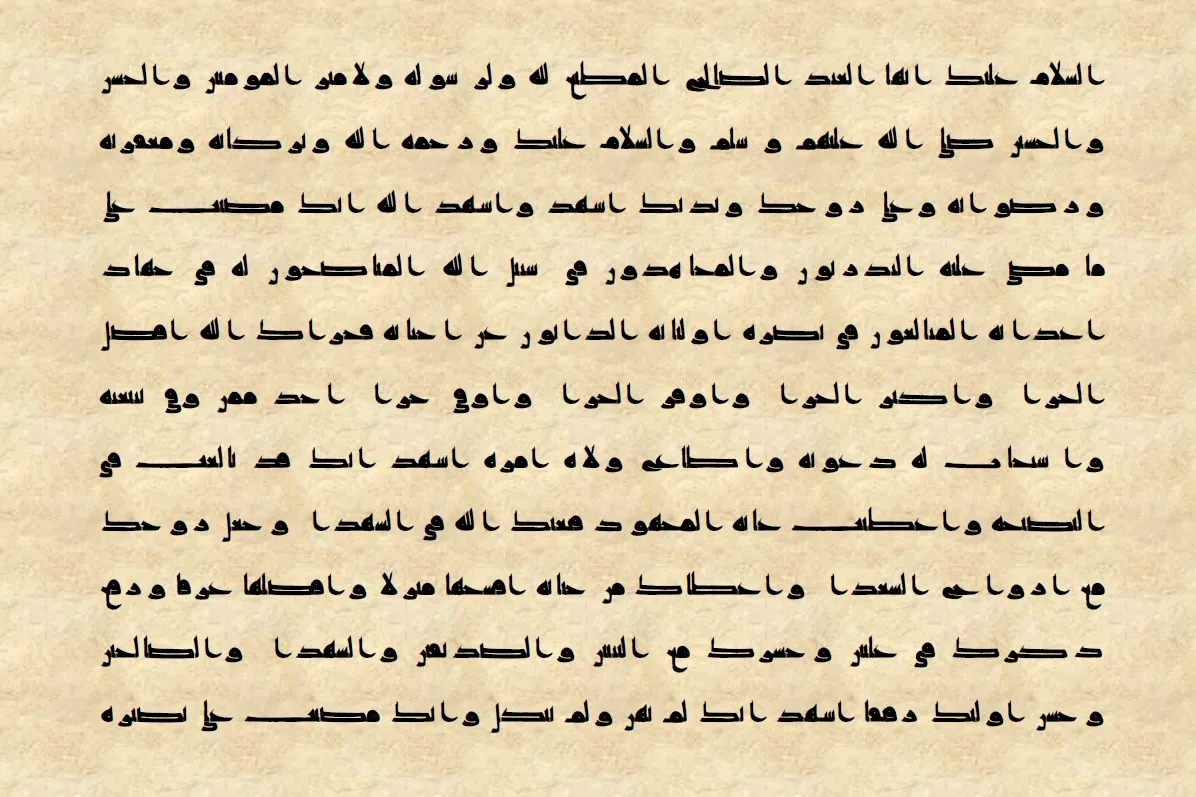 السلام عليك ايها العبد الصالح المطيع لله ولرسوله ولامير المومنين والحسن
والحسين صلى الله عليهم و سلم والسلام عليك ورحمه الله وبركاته ومغفرته
ورضوانه وعلى روحك وبدنك اشهد واشهد الله انك مضيت على
ما مضى عليه البدريون والمجاهدون في سبيل الله المناصحون له في جهاد
اعدائه المبالغون في نصره اوليائه الذابون عن احبائه فجزاك الله افضل
الجزا واكثر الجزا واوفر الجزا واوفى جزا احد ممن وفى ببيعته
واستجاب له دعوته واطاع ولاه امره اشهد انك قد بالغت في
النصيحه واعطيت غايه المجهود فبعثك الله في الشهدا وجعل روحك
مع ارواح السعدا واعطاك من جنانه افسحها منزلا وافضلها غرفا ورفع
ذكرك في عليين وحشرك مع النبيين والصديقين والشهدا والصالحين
وحسن اولئك رفيقا اشهد انك لم تهن ولم تنكل وانك مضيت على بصيره